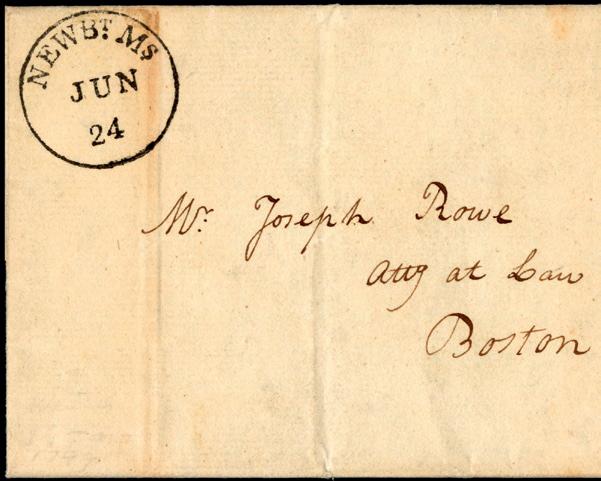 NEWBT. MS
JUN
24
Mr. Joseph Rowe
Atty at Law
Boston